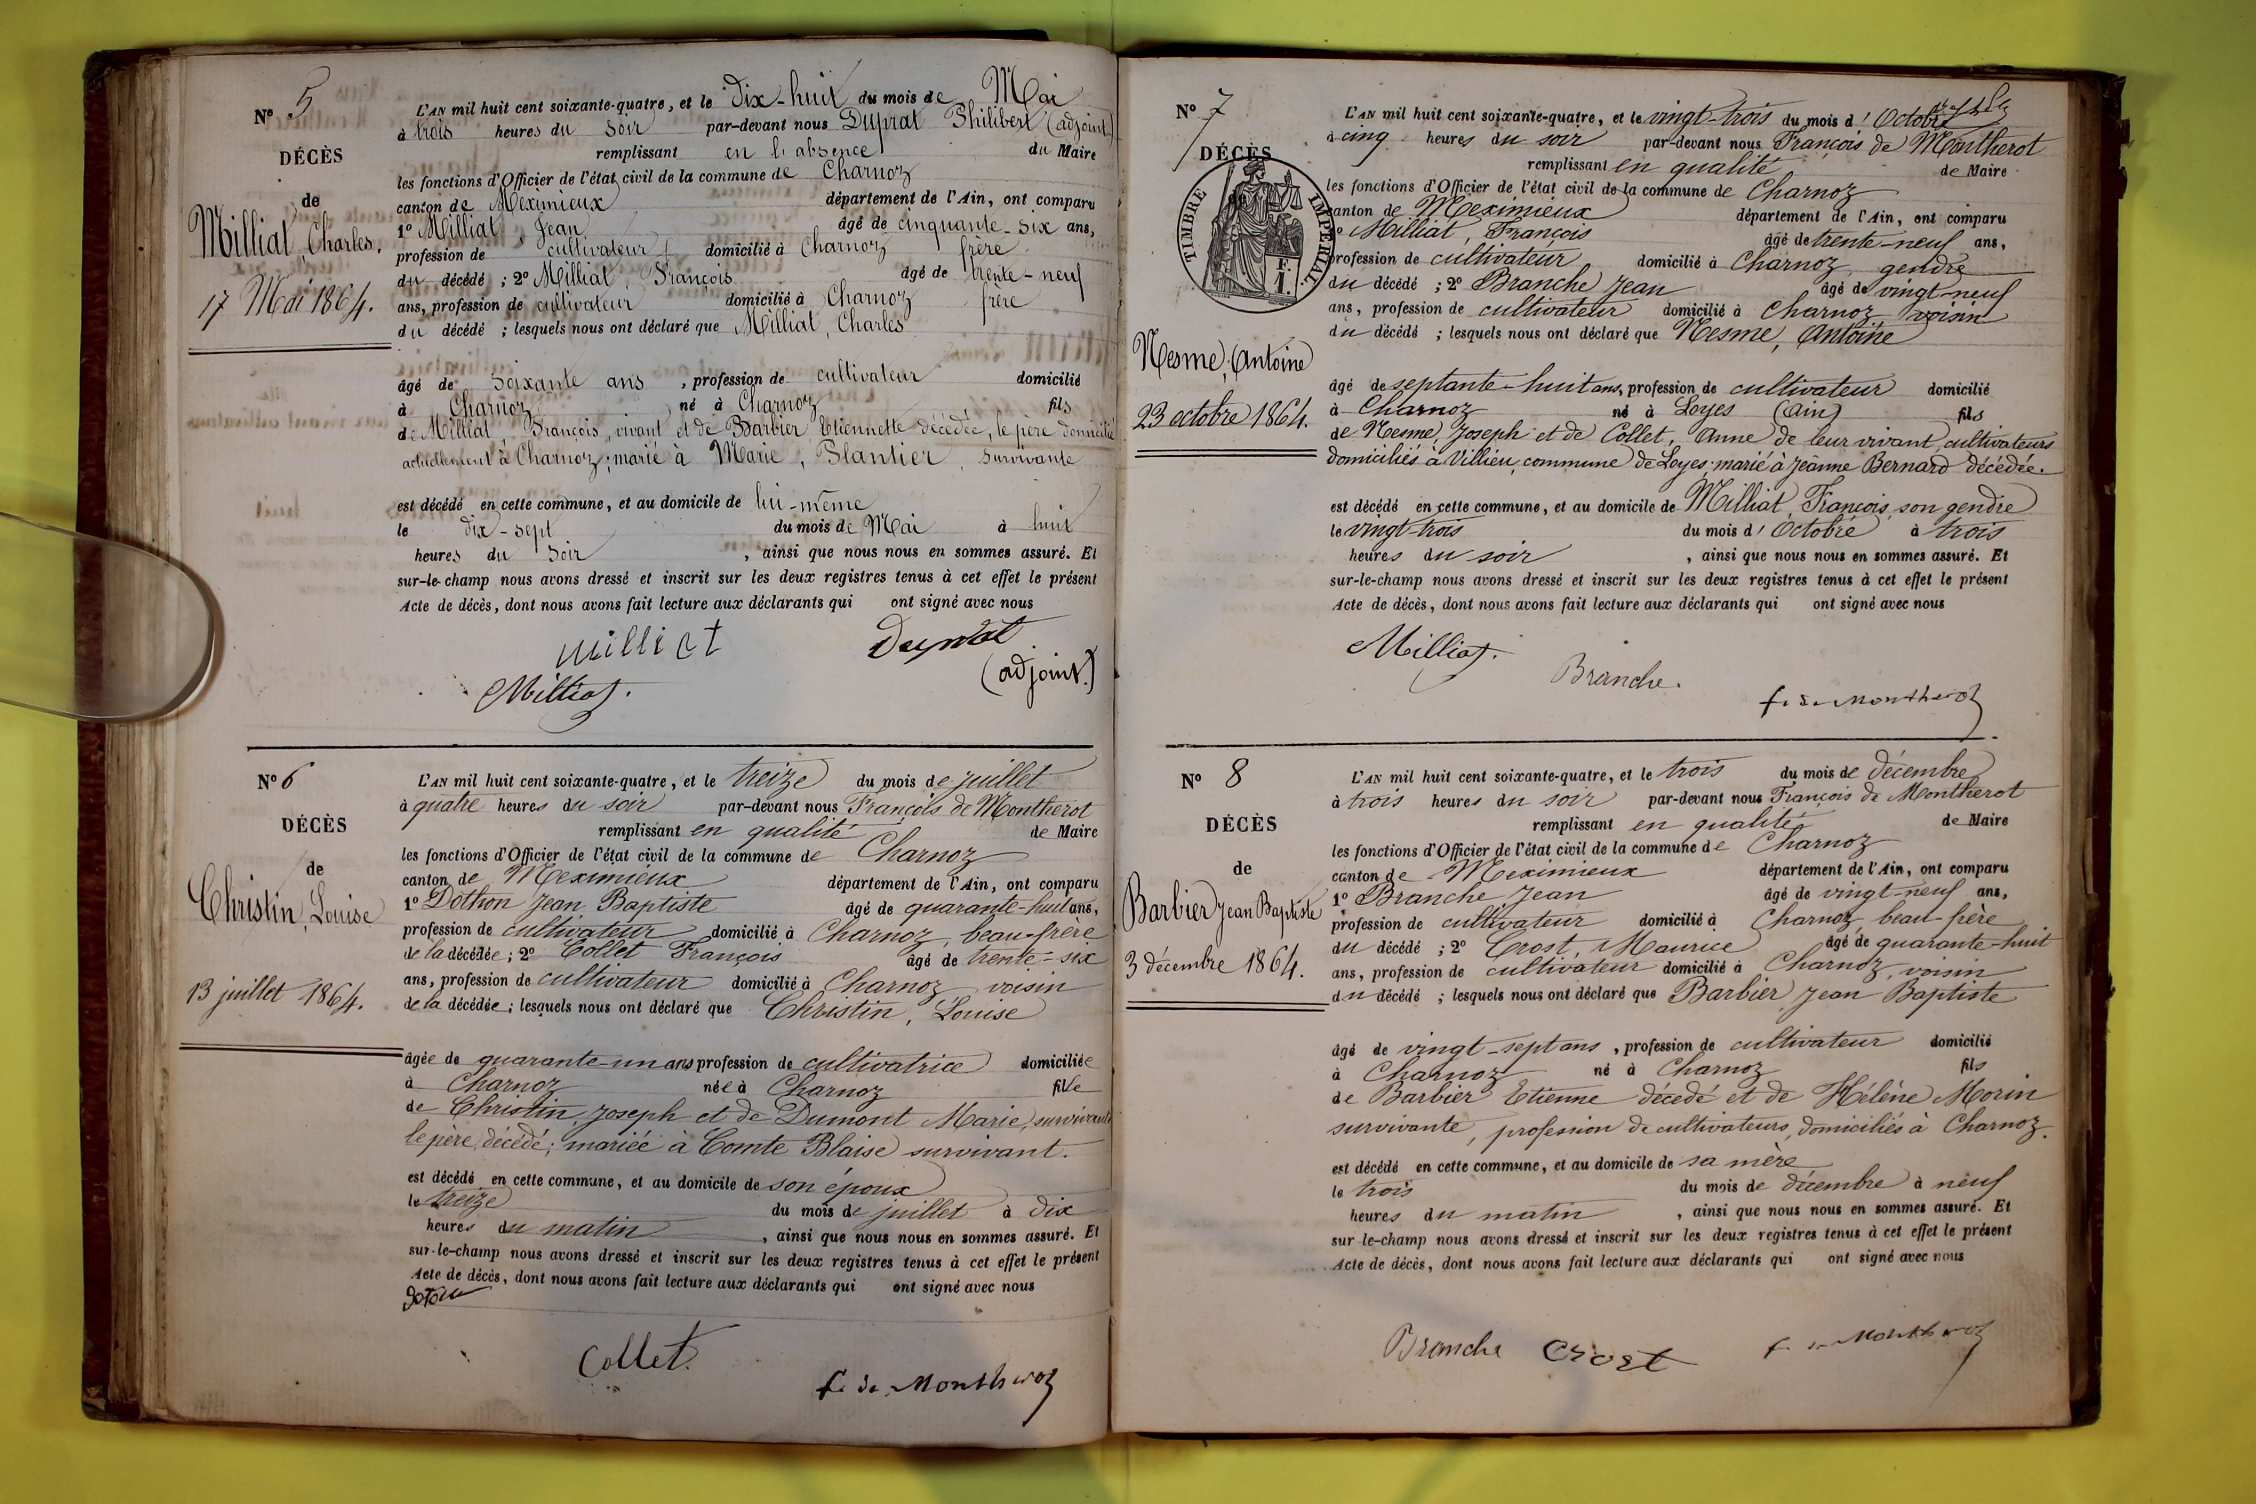 N° 5
DÉCÈS
de
Milliat, Charles.
17 Mai 1864.
L'AN mil huit cent soixante-quatre, et le Dix-huit du mois de Mai
à trois heures du soir par-devant nous Duprat Philibert (adjoint)
remplissant en l'absence du Maire
les fonctions d'Officier de l'état civil de la commune de Charnoz
canton de Meximieux département de l'Ain, ont comparu
1° Milliat, Jean âgé de cinquante-six ans,
profession de cultivateur domicilié à Charnoz frère
du décédé ; 2° Milliat, François âgé de trente-neuf
ans, profession de cultivateur domicilié à Charnoz frère
du décédé ; lesquels nous ont déclaré que Milliat, Charles
âgé de soixante ans, profession de cultivateur domicilié
à Charnoz né à Charnoz fils
de Milliat, François, vivant et de Barbier Etiennette décédée, le père domicilié
actuellement à Charnoz; marié à Marie, Plantier, survivante
est décédé en cette commune, et au domicile de lui-même
le dix-sept du mois de Mai à huit
heures du soir, ainsi que nous nous en sommes assuré. Et
sur-le-champ nous avons dressé et inscrit sur les deux registres tenus à cet effet le présent
Acte de décès, dont nous avons fait lecture aux déclarants qui ont signé avec nous
Milliat Duprat
(adjoint.)
Milliat.
N° 6
DÉCÈS
de
Christin, Louise
13 juillet 1864.
L'AN mil huit cent soixante-quatre, et le treize du mois de juillet
à quatre heures du soir par-devant nous François de Montherot
remplissant en qualité de Maire
les fonctions d'Officier de l'état civil de la commune de Charnoz
canton de Meximieux département de l'Ain, ont comparu
1° Dothon Jean Baptiste âgé de quarante-huit ans,
profession de cultivateur domicilié à Charnoz, beau-frère
de la décédée ; 2° Collet François âgé de trente-six
ans, profession de cultivateur domicilié à Charnoz voisin
de la décédée ; lesquels nous ont déclaré que Christin, Louise
âgée de quarante-un ans profession de cultivatrice domiciliée
à Charnoz née à Charnoz fille
de Christin, Joseph et de Dumont Marie, survivante
le père décédé; mariée à Comte Blaise survivant.
est décédé en cette commune, et au domicile de son époux
le treize du mois de juillet à dix
heures du matin, ainsi que nous nous en sommes assuré. Et
sur-le-champ nous avons dressé et inscrit sur les deux registres tenus à cet effet le présent
Acte de décès, dont nous avons fait lecture aux déclarants qui ont signé avec nous
Collet.
f. de Montherot
N° 7
DÉCÈS
de
TIMBRE IMPÉRIAL.
F.
1.
Nesme, Antoine
23 octobre 1864.
L'AN mil huit cent soixante-quatre, et le vingt-trois du mois d'Octobre
à cinq heures du soir par-devant nous François de Montherot
remplissant en qualité de Maire
les fonctions d'Officier de l'état civil de la commune de Charnoz
canton de Meximieux département de l'Ain, ont comparu
1° Milliat, François âgé de trente-neuf ans,
profession de cultivateur domicilié à Charnoz, gendre
du décédé ; 2° Branche Jean âgé de vingt-neuf
ans, profession de cultivateur domicilié à Charnoz voisin
du décédé ; lesquels nous ont déclaré que Nesme, Antoine
âgé de septante-huit ans, profession de cultivateur domicilié
à Charnoz né à Loyes (Ain) fils
de Nesme, Joseph et de Collet, Anne de leur vivant cultivateurs
domiciliés à Villieu, commune de Loyes; marié à Jeanne Bernard décédée.
est décédé en cette commune, et au domicile de Milliat, François, son gendre
le vingt-trois du mois d'Octobre à trois
heures du soir, ainsi que nous nous en sommes assuré. Et
sur-le-champ nous avons dressé et inscrit sur les deux registres tenus à cet effet le présent
Acte de décès, dont nous avons fait lecture aux déclarants qui ont signé avec nous
Milliat.
Branche.
f. de Montherot
N° 8
DÉCÈS
de
Barbier Jean Baptiste
3 décembre 1864.
L'AN mil huit cent soixante-quatre, et le trois du mois de décembre
à trois heures du soir par-devant nous François de Montherot
remplissant en qualité de Maire
les fonctions d'Officier de l'état civil de la commune de Charnoz
canton de Meximieux département de l'Ain, ont comparu
1° Branche Jean âgé de vingt-neuf ans,
profession de cultivateur domicilié à Charnoz, beau-frère
du décédé ; 2° Crost, Maurice âgé de quarante-huit
ans, profession de cultivateur domicilié à Charnoz, voisin
du décédé ; lesquels nous ont déclaré que Barbier Jean Baptiste
âgé de vingt-sept ans, profession de cultivateur domicilié
à Charnoz né à Charnoz fils
de Barbier Etienne décédé et de Hélène Morin
survivante, profession de cultivateurs, domiciliés à Charnoz.
est décédé en cette commune, et au domicile de sa mère
le trois du mois de décembre à neuf
heures du matin, ainsi que nous nous en sommes assuré. Et
sur-le-champ nous avons dressé et inscrit sur les deux registres tenus à cet effet le présent
Acte de décès, dont nous avons fait lecture aux déclarants qui ont signé avec nous
Branche Crost f. de Montherot